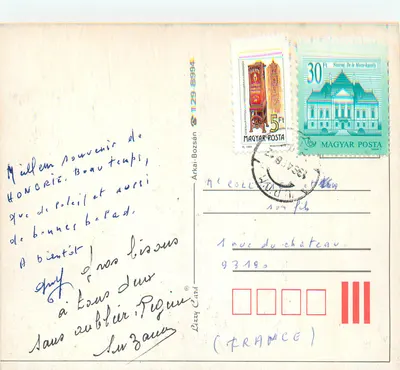 Meilleur souvenir de
HONGRIE. Beau temps,
que de soleil et aussi
de bonnes balad.
A bientôt!
gros bisous
à tous deux
sans oublier
Suzanne
Arkai Bozsán
1298994
Lizzy Card
5Ft
MAGYAR POSTA
30 Ft
MAGYAR POSTA
Mr COLL
son fils
1 rue du chateau
93190
(FRANCE)